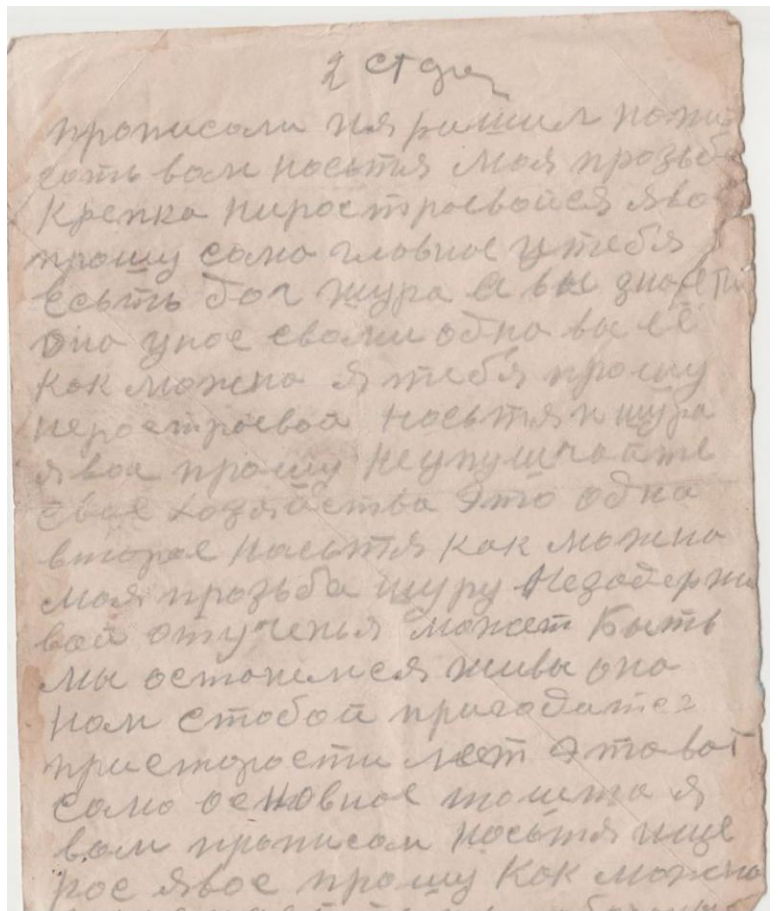 2 стра
прописали и я решил попи
сать вам Насьтя моя прозьба
Крепка нирастраевайся я вас
прошу само главное у тебя
есьть боч шура а вы знаети
она унас свами одна вы её
Как можно я тебя прошу
нерострaевай Насьтя и шура
я вас прошу Неупушчайте
свае хозяйства Это одно
второе Насьтя Как можно
моя прозьба шуру Незадержи
вай отученья может Быть
мы останемся живы она
нам стобой пригодитса
пристарости лет Это вот
само основное тошто я
вам прописал Насьтя ище
рос явас прошу Как можно